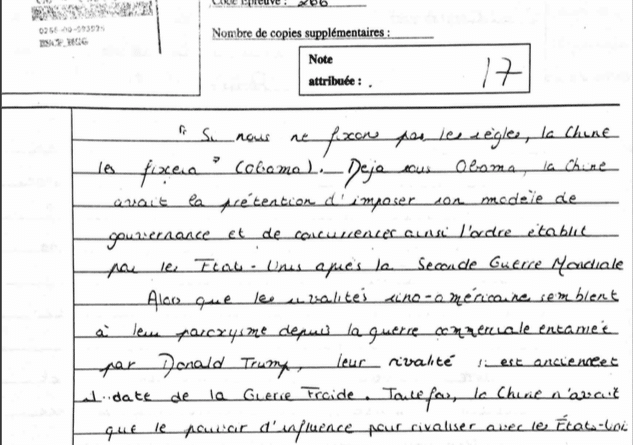 Code épreuve : 266
Nombre de copies supplémentaires :
Note
attribuée : . 17
" Si nous ne fixons pas les règles, la Chine
les fixera " (Obama). Deja sous Obama, la Chine
avait la prétention d'imposer son modèle de
gouvernance et de concurrencer ainsi l'ordre établit
par les Etats-Unis après la Seconde Guerre Mondiale
Alors que les rivalités sino-américaines semblent
à leur paroxysme depuis la guerre commerciale entamée
par Donald Trump, leur rivalité est ancienne et
date de la Guerre Froide. Toutefois, la Chine n'avait
que le pouvoir d'influence pour rivaliser avec les États-Unis